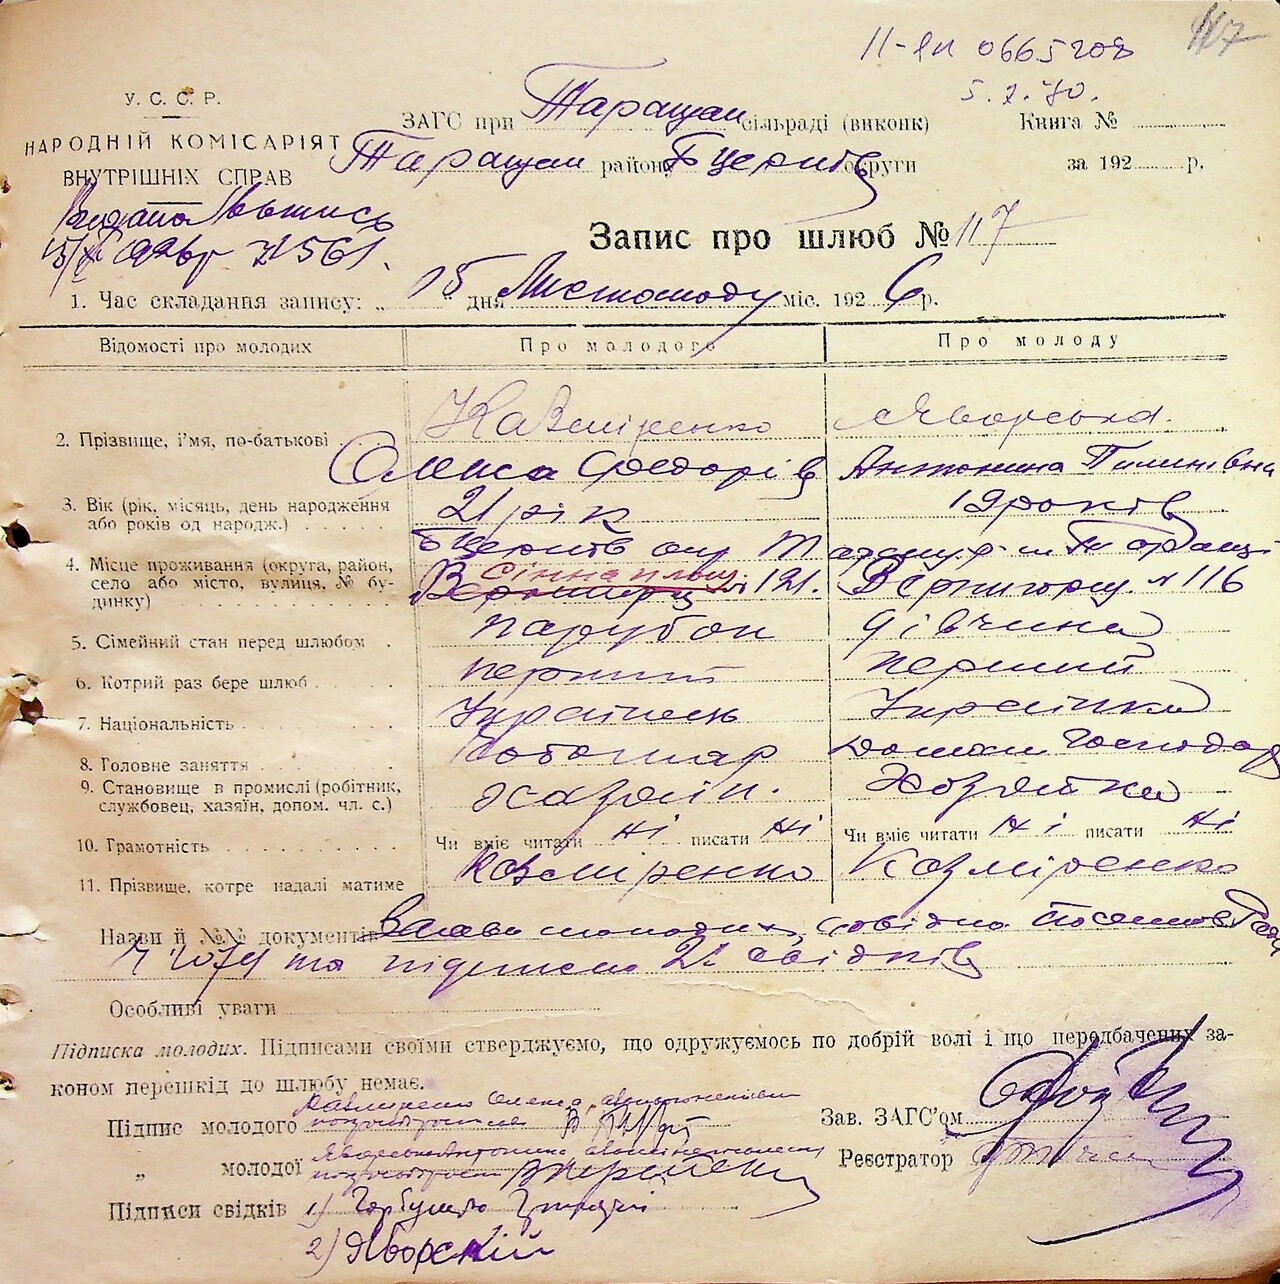 117
11-ЯЛ 0665208
5.2.80.
У. С. С. Р.
НАРОДНІЙ КОМІСАРІЯТ
ВНУТРІШНІХ СПРАВ
ЗАГС при Таращан сільраді (виконк)
Книга №
Таращан району Бцерків округи
за 192 р.
Видана Выпись
№ 561.
Запис про шлюб № 117
1. Час складання запису: „ 15 " дня Листопаду міс. 1926 р.
Відомості про молодих
Про молодого
Про молоду
2. Прізвище, і'мя, по-батькові
Казміренко
Яворська.
Олекса Федорів
Антонина Пилипівна
3. Вік (рік, місяць, день народження або років од народж.)
21 рік
19 років
4. Місце проживання (округа, район, село або місто, вулиця, № будинку)
Бцерків окр Таращ. р. м Таращі
Сінна площ № 121.
Вернигори № 116
5. Сімейний стан перед шлюбом
парубок
дівчина
6. Котрий раз бере шлюб
перший
перший
7. Національність
Українець
Українка
8. Головне заняття
Чоботар
Домаш Господар
9. Становище в промислі (робітник, службовец, хазяїн, допом. чл. с.)
Хазяїн.
Хозяйка
10. Грамотність
Чи вміє читати ні писати ні
Чи вміє читати ні писати ні
11. Прізвище, котре надалі матиме
Казміренко
Казміренко
Назви й №№ документів Заява молодих, довідка
та підписка 2х свідків
Особливі уваги
Підписка молодих. Підписами своїми стверджуємо, що одружуємось по добрій волі і що передбачених законом перешкід до шлюбу немає.
Підпис молодого
Зав. ЗАГС'ом
„ молодої
Реєстратор
Підписи свідків 1)
2) Яворский